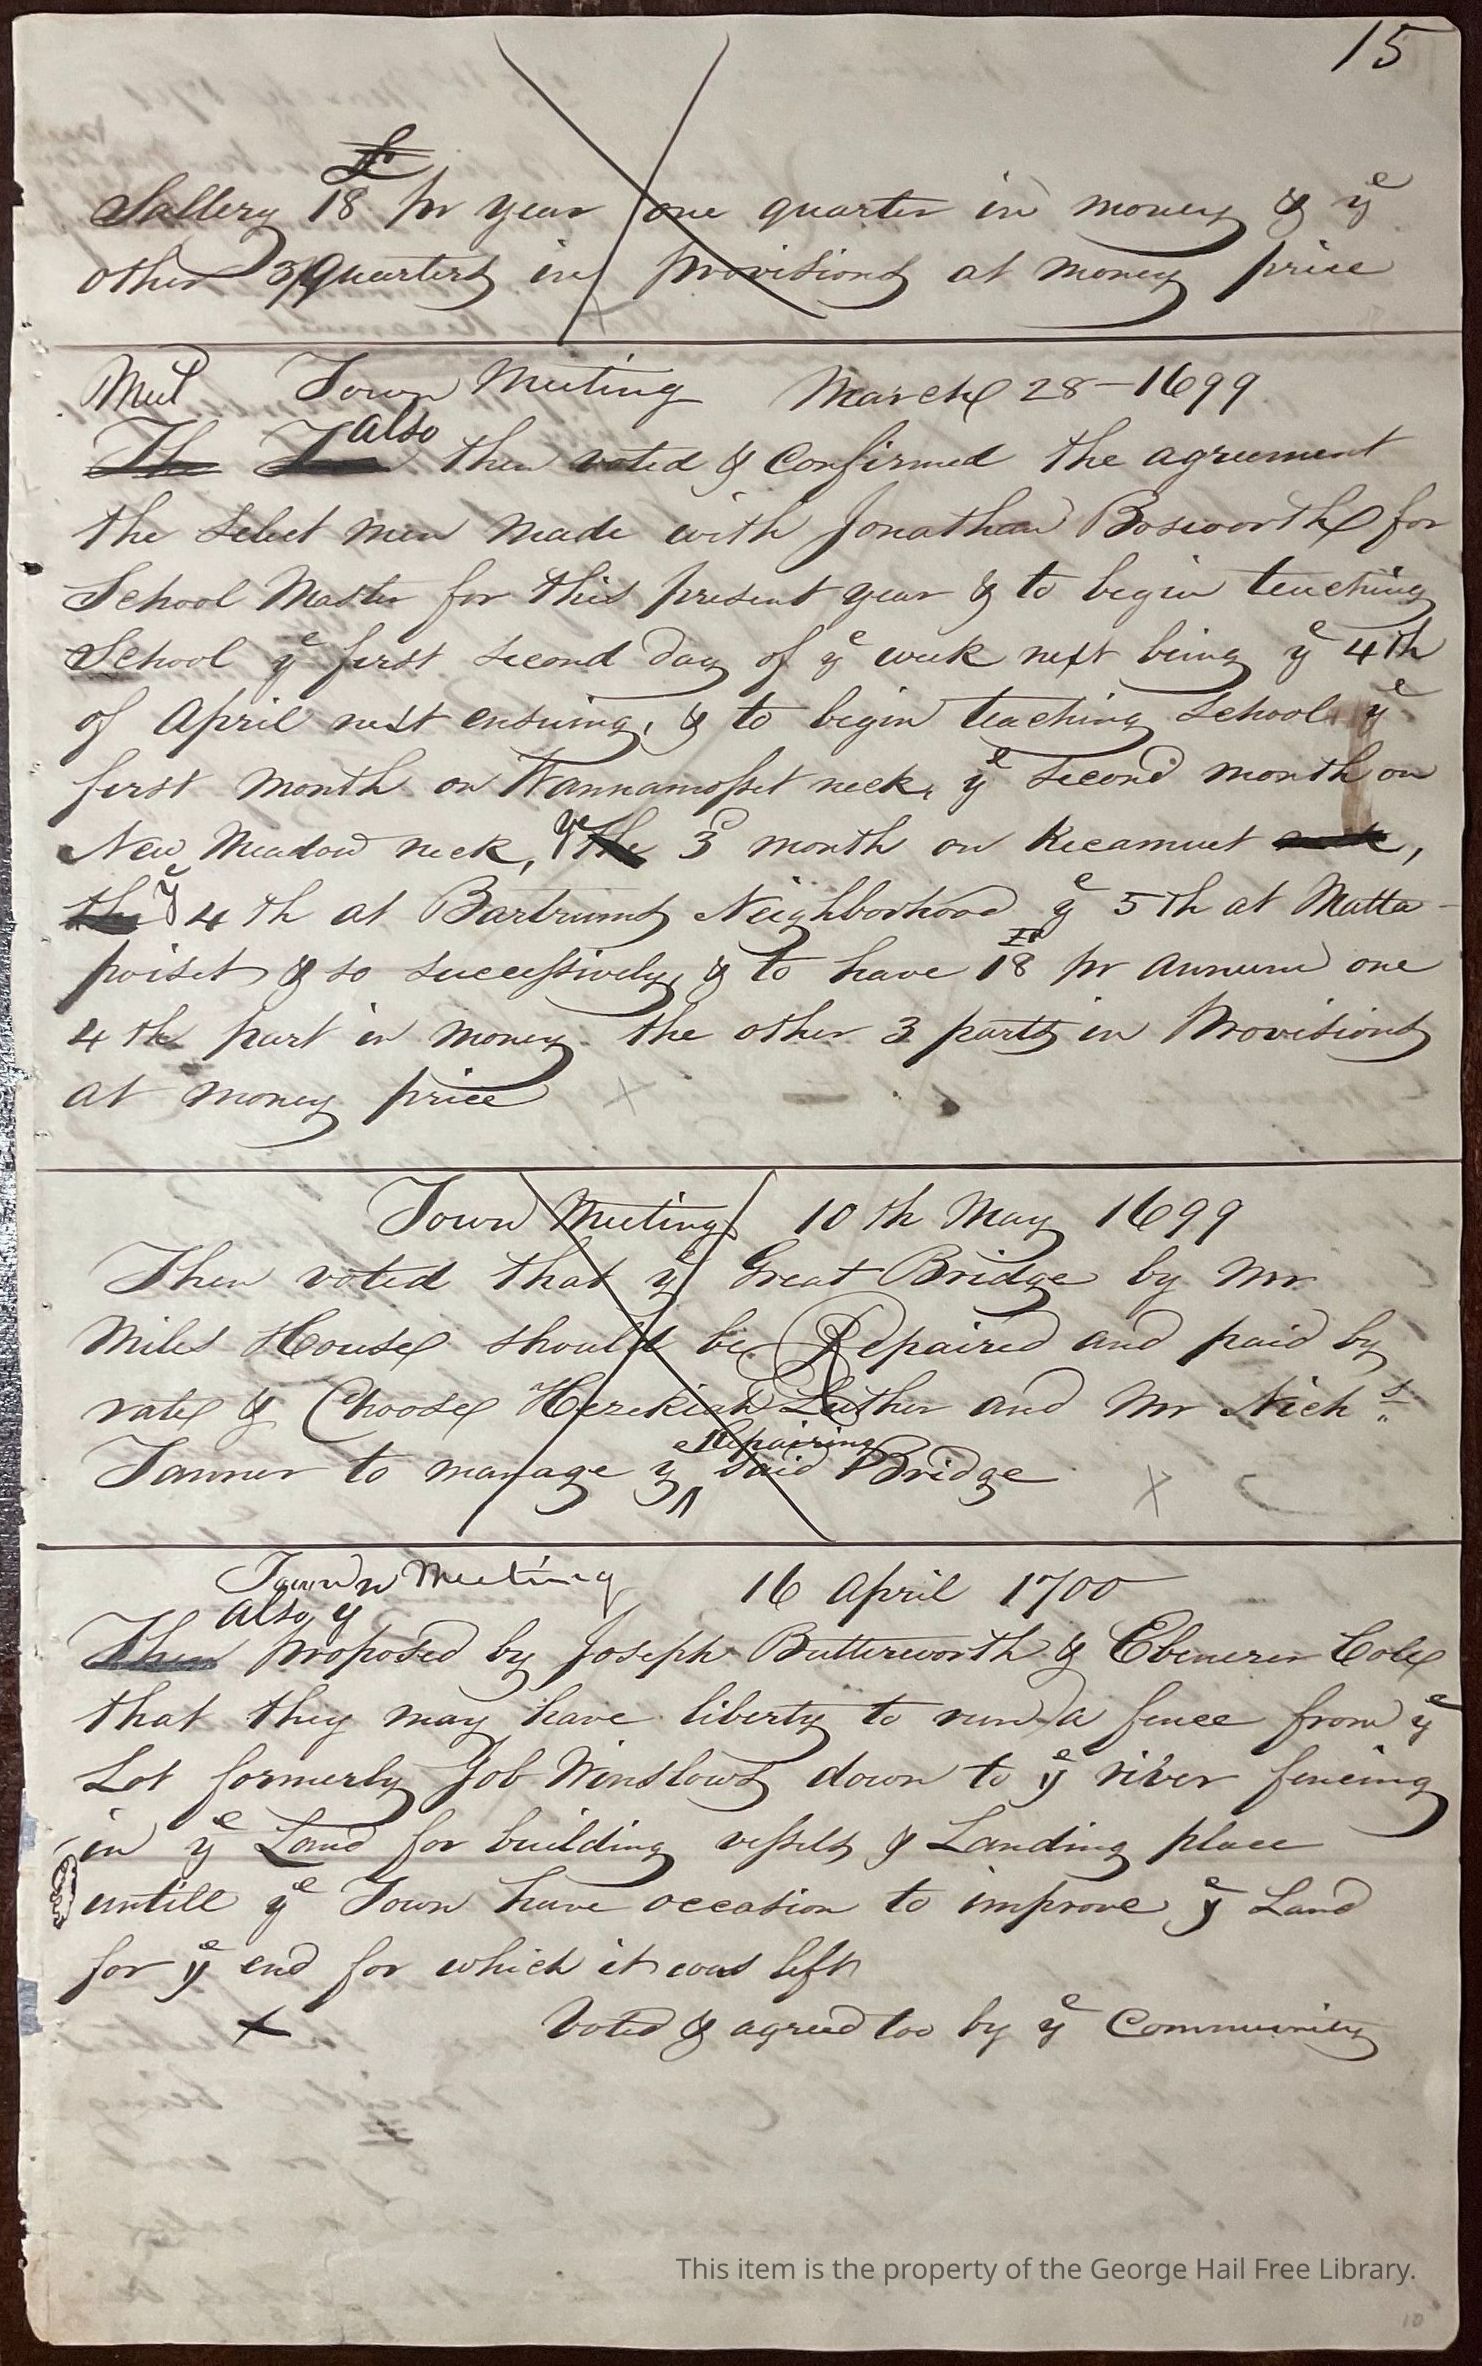 15
£
Sallery 18 pr year one quarter in money & ye
other 3/Quarters in provisions at money price
Town Meeting March 28 - 1699
also
The then voted & Confirmed the agreement
the select men made with Jonathan Bosworth for
School Master for this present year & to begin teaching
School ye first second day of ye week next being ye 4th
of April next ensuing, & to begin teaching School ye
first month on Wannamosset neck, ye second month on
New Meadow neck, ye the 3d month on Kecamuet neck,
the ye 4th at Bartrums Neighborhood ye 5th at Matta-
poiset & so successively, & to have 18 pr annum one
4th part in money the other 3 parts in Provisions
at money price
Town Meeting 10th May 1699
Then voted that ye Great Bridge by Mr
Miles House should be Repaired and paid by
rate & Choose Hezekiah Luther and Mr Nichs
Repairing
Tanner to manage ye said Bridge
Town Meeting 16 April 1700
also ye
Then proposed by Joseph Butterworth & Ebenezer Cole
that they may have liberty to run a fence from ye
Lot formerly Job Winslows down to ye river fencing
in ye Land for building vessels & Landing place
untill ye Town have occasion to improve ye Land
for ye end for which it was left
x Voted & agreed too by ye Community
This item is the property of the George Hail Free Library.
10